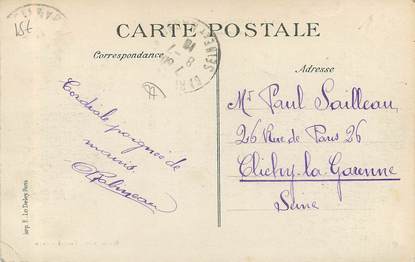 157
CARTE POSTALE
Correspondance
Adresse
Cordiale poignée de
mains
Mr Paul Sailleau,
26 Rue de Paris 26
Clichy-la-Garenne
Seine